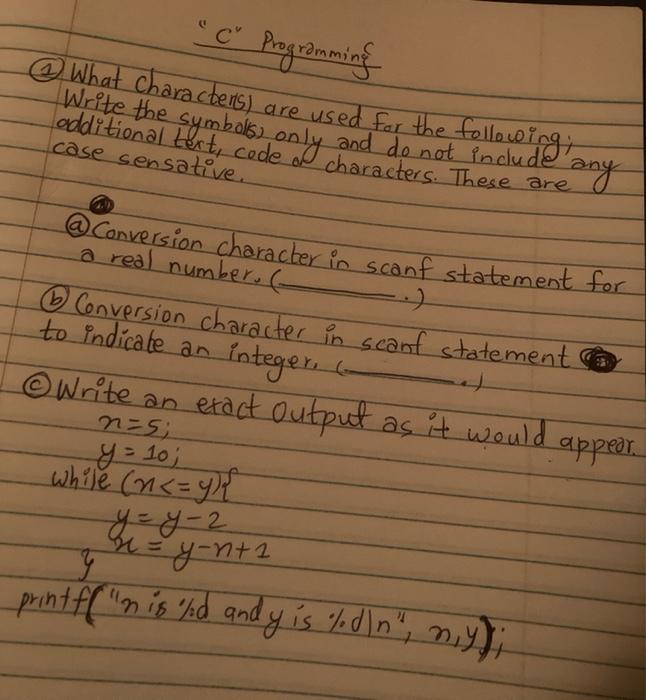 "C" Programming
① What character(s) are used for the following;
Write the symbol(s) only and do not include any
additional text, code or characters. These are
case sensative.
ⓐ Conversion character in scanf statement for
a real number. (________.)
ⓑ Conversion character in scanf statement
to indicate an integer. (________.)
ⓒ Write an exact output as it would appear.
n=5;
y=10;
while (n<=y){
y=y-2
n=y-n+1
}
printf("n is %d and y is %d\n", n,y);